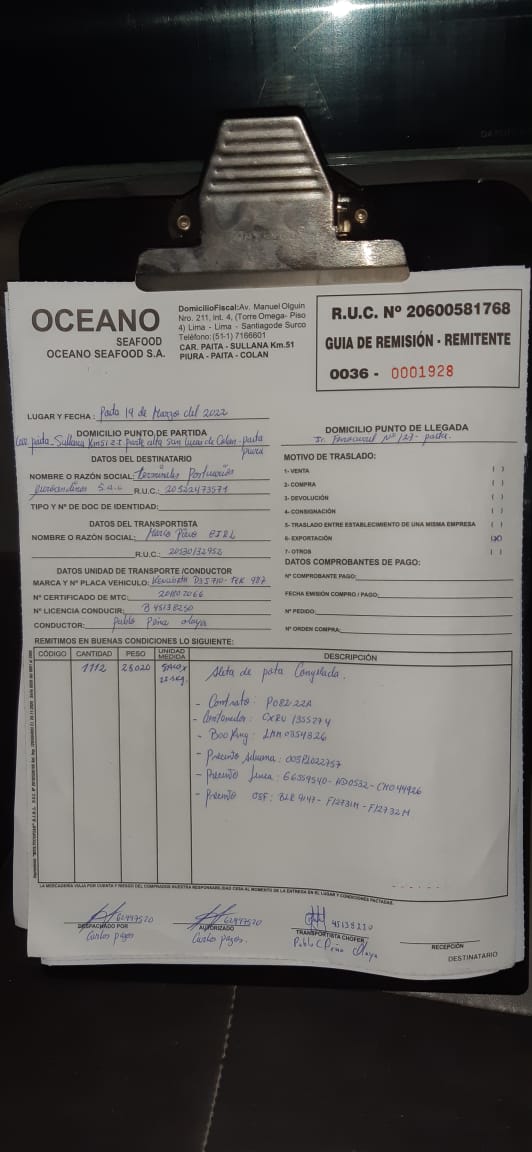 OCEANO
SEAFOOD
OCEANO SEAFOOD S.A.
DomicilioFiscal:Av. Manuel Olguin
Nro. 211, Int. 4, (Torre Omega- Piso
4) Lima - Lima - Santiagode Surco
Teléfono:(51-1) 7166601
CAR. PAITA - SULLANA Km.51
PIURA - PAITA - COLAN
R.U.C. Nº 20600581768
GUIA DE REMISIÓN - REMITENTE
0036 - 0001928
LUGAR Y FECHA : Paita 14 de Marzo del 2022
DOMICILIO PUNTO DE PARTIDA
paita - Sullana Km51 parte alta San Lucas de Colan - paita
piura
DOMICILIO PUNTO DE LLEGADA
Jr. Ferrocarril Nº 127 - paita.
DATOS DEL DESTINATARIO
NOMBRE O RAZÓN SOCIAL: Terminales Portuarios
S.A.C R.U.C.: 20522473571
TIPO Y Nº DE DOC DE IDENTIDAD:
DATOS DEL TRANSPORTISTA
NOMBRE O RAZÓN SOCIAL: EIRL
R.U.C.: 20530132952
DATOS UNIDAD DE TRANSPORTE /CONDUCTOR
MARCA Y Nº PLACA VEHICULO:
Nº CERTIFICADO DE MTC:
Nº LICENCIA CONDUCIR: B 45138250
CONDUCTOR: Pablo Peña Olaya
MOTIVO DE TRASLADO:
1- VENTA ( )
2- COMPRA ( )
3- DEVOLUCIÓN ( )
4- CONSIGNACIÓN ( )
5- TRASLADO ENTRE ESTABLECIMIENTO DE UNA MISMA EMPRESA ( )
6- EXPORTACIÓN (X)
7- OTROS ( )
DATOS COMPROBANTES DE PAGO:
Nº COMPROBANTE PAGO:
FECHA EMISIÓN COMPRO / PAGO:
Nº PEDIDO:
Nº ORDEN COMPRA:
REMITIMOS EN BUENAS CONDICIONES LO SIGUIENTE:
CÓDIGO CANTIDAD PESO UNIDAD MEDIDA DESCRIPCIÓN
1112 28020 Aleta de pota Congelada.
- Contrato: P082-22A
- Contenedor: CXRU 1355274
- Booking: LMM0354826
- Precinto Aduana: 005P1022757
- Precinto linea: - AD0532 - CM044926
- Precinto OSF: BLR 9147 - F12731M - F12732M
LA MERCADERIA VIAJA POR CUENTA Y RIESGO DEL COMPRADOR NUESTRA RESPONSABILIDAD CESA AL MOMENTO DE LA ENTREGA EN EL LUGAR Y CONDICIONES PACTADAS.
DESPACHADO POR
Carlos pazos
AUTORIZADO
Carlos pazos.
TRANSPORTISTA CHOFER
Pablo C Peña Olaya
RECEPCIÓN
DESTINATARIO